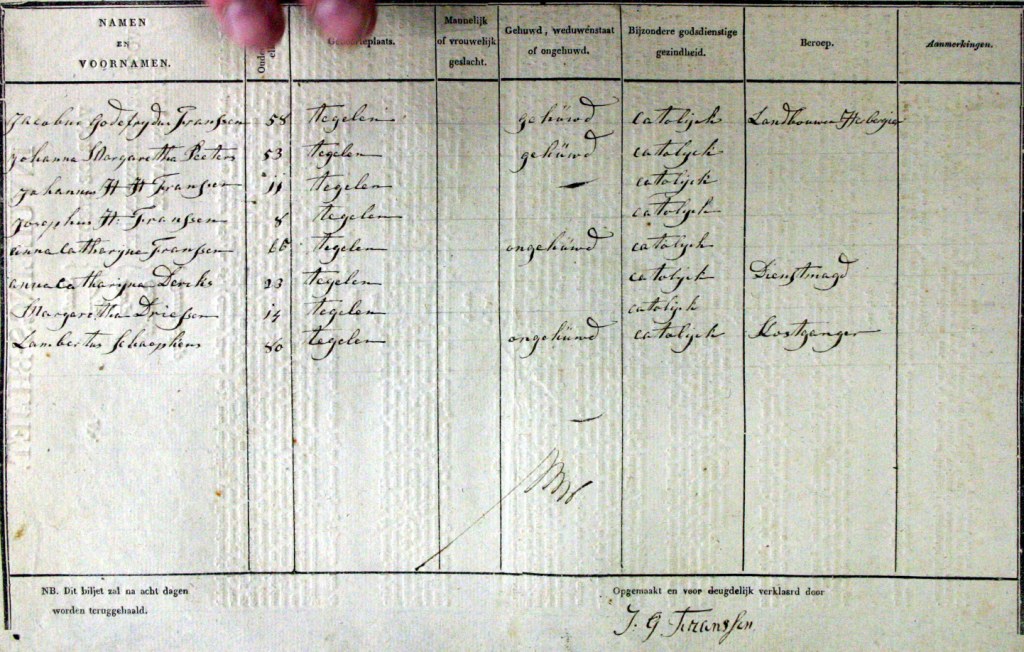 NAMEN EN VOORNAMEN. Oude Geboorteplaats. Mannelijk of vrouwelijk geslacht. Gehuwd, weduwenstaat of ongehuwd. Bijzondere godsdienstige gezindheid. Beroep. Aanmerkingen.
Jacobus Godefrydus Franssen 58 tegelen gehüwd catolijck Landbouwer Herbergier
Johanna Margaretha Peeters 53 tegelen gehüwd catolyck
Johannes H H Franssen 11 tegelen — catolijck
Josephus H. Franssen 8 tegelen catolyck
anna Catharyna Franssen 66 tegelen ongehüwd catolyck
anna Catharyna Dercks 23 tegelen catolijck Dienstmagd
Margaretha Driessen 14 tegelen catolijck
Lambertus Schaephens 80 tegelen ongehüwd catolyck Kostganger
NB. Dit biljet zal na acht dagen
worden teruggehaald.
Opgemaakt en voor deugdelijk verklaard door
J. G Franssen